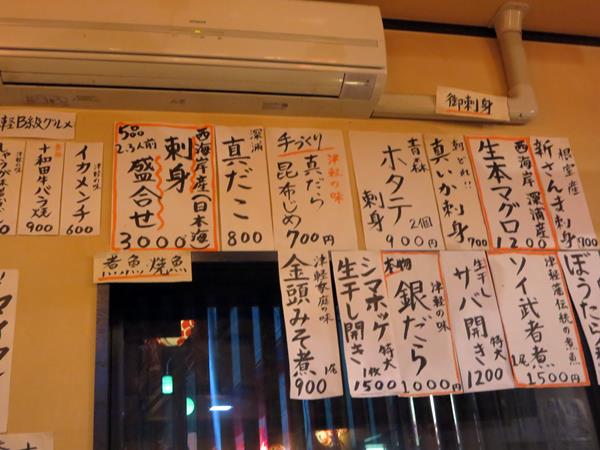 HITACHI
御刺身
根室産
新さんま刺身
700
西海岸深浦産
生本マグロ
1200
朝どれ!!
真いか刺身
700
青森
ホタテ 2個
刺身
900円
津軽の味
手づくり 真だら
昆布じめ
700円
深浦
真だこ
800
西海岸産(日本海
刺身
盛合せ
5品
2.3人前
3000
軽B級グルメ
津軽の味
イカメンチ
600
十和田牛バラ焼
900
煮魚焼魚
ぼうたら
津軽藩伝統の煮魚
ソイ武者煮
1尾
1500円
生干し
サバ開き
特大
1200
津軽の味
本物
銀だら
1000円
シマホッケ 特大
生干し開き
1枚
1500
津軽家庭の味
金頭みそ煮
1尾
900